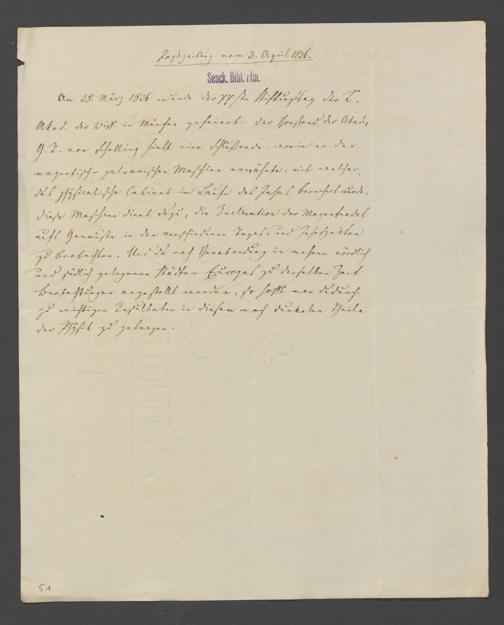 Postzeitung vom 3. April 1836.
Senck. Bibl. Ffm.
Am 28. März 1836 wurde der 77ste Stiftungstag der K.
Akad. der Wiss. in München gefeiert. Der Vorstand der Akad.
G. R. von Schelling hielt eine Schlußrede, worin er der
magnetisch-galvanischen Maschine erwähnte, mit welcher
das physikalische Cabinet im Laufe des Jahres bereichert wurde.
Diese Maschine dient dazu, die Inclination der Magnetnadel
aufs Genaueste in den verschiedenen Tages- und Jahrszeiten
zu beobachten. Und da nach Verabredung in mehren nördlich
und südlich gelegenen Städten Europas zu derselben Zeit
Beobachtungen angestellt werden, so hofft man dadurch
zu wichtigen Resultaten in diesem noch dunkeln Theile
der Physik zu gelangen.
51